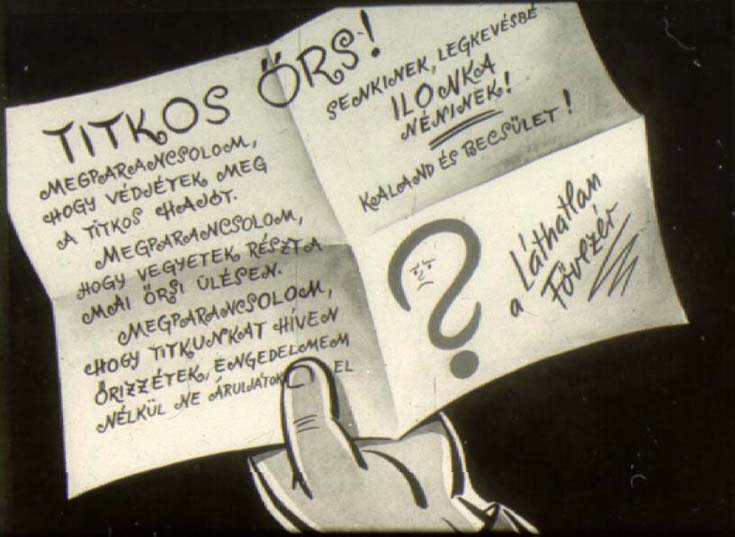 TITKOS ŐRS!
MEGPARANCSOLOM,
HOGY VÉDJÉTEK MEG
A TITKOS HAJÓT.
MEGPARANCSOLOM,
HOGY VEGYETEK RÉSZT A
MAI ŐRSI ÜLÉSEN.
MEGPARANCSOLOM,
HOGY TITKUNKAT HÍVEN
ŐRIZZÉTEK, ENGEDELMEM
NÉLKÜL NE ÁRULJÁTOK EL
SENKINEK, LEGKEVÉSBÉ
ILONKA
NÉNINEK!
KALAND ÉS BECSÜLET!
?
a Láthatlan
Fővezér